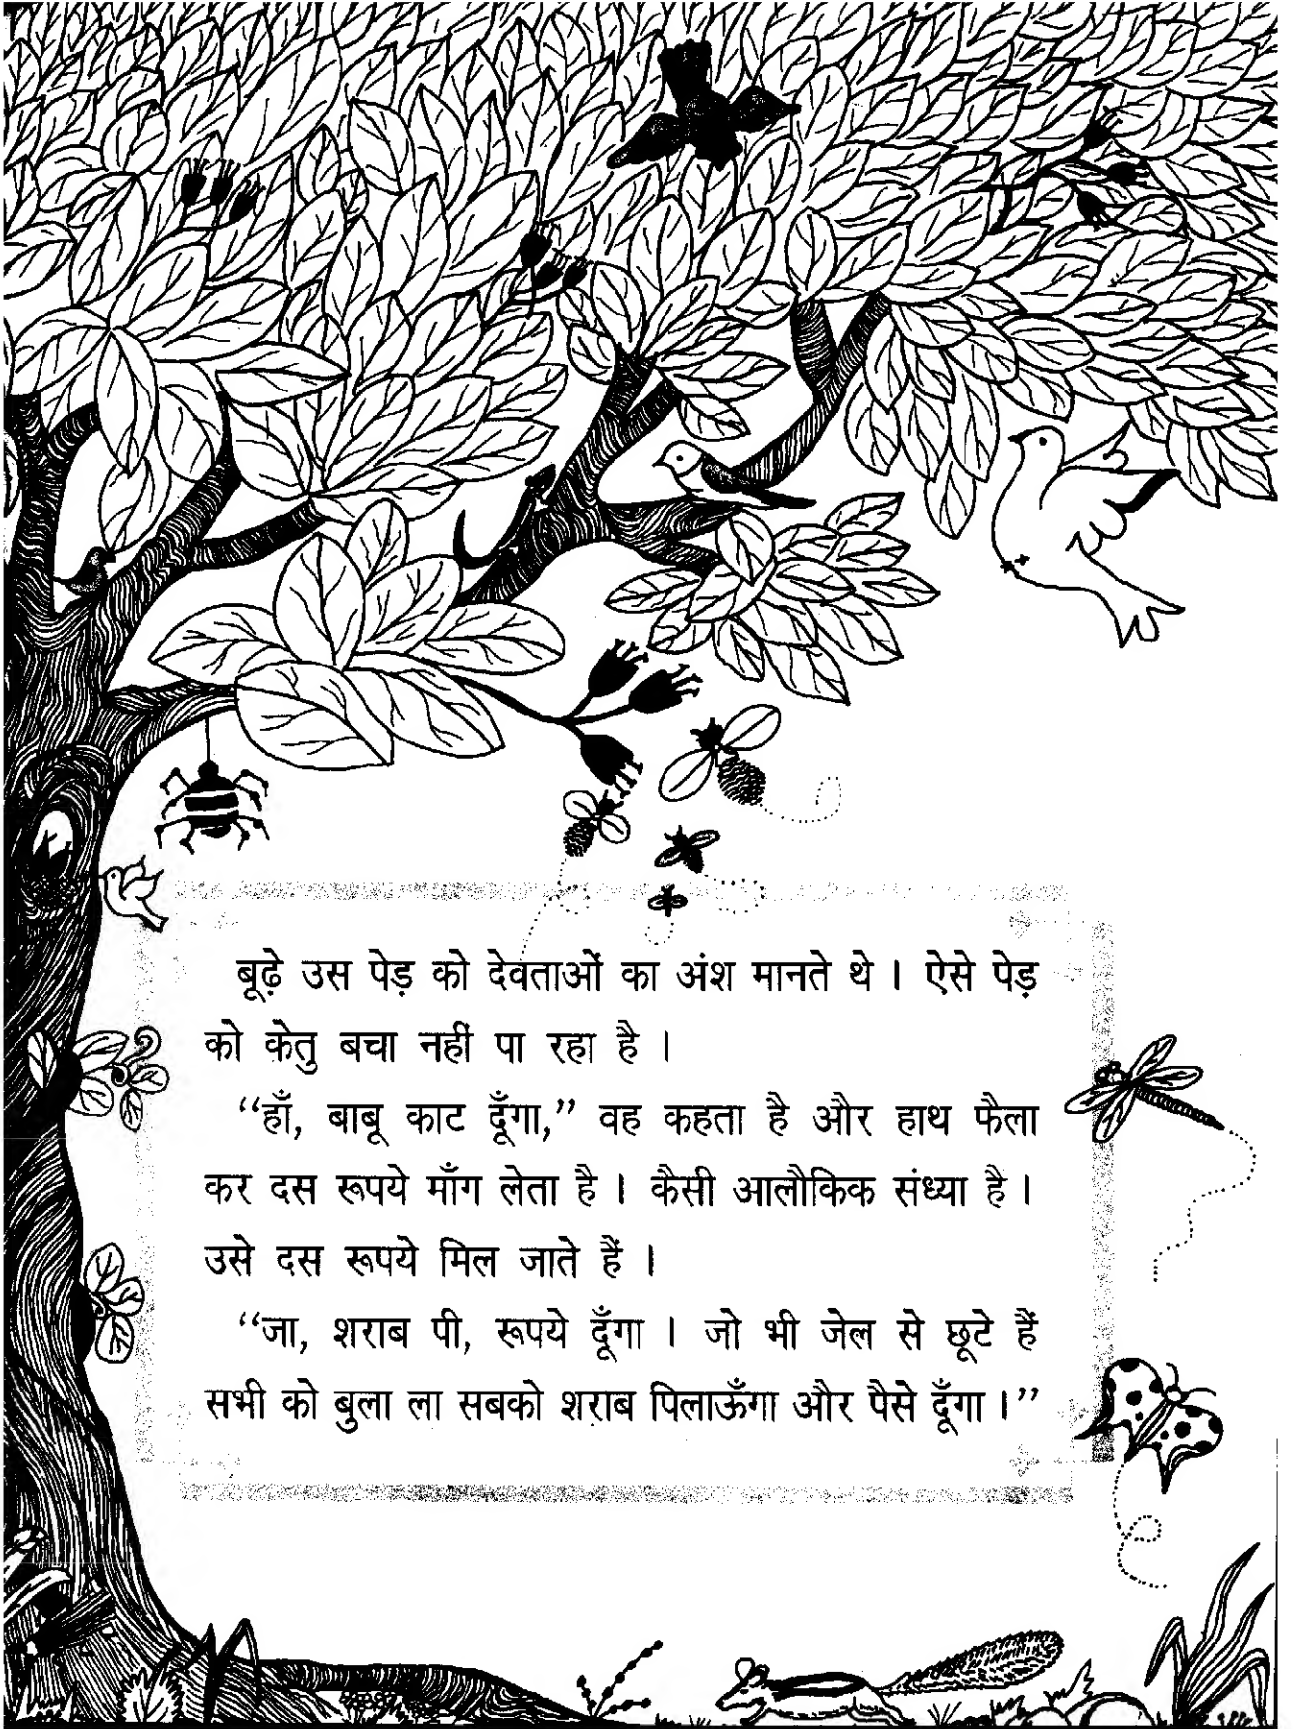 बूढ़े उस पेड़ को देवताओं का अंश मानते थे । ऐसे पेड़
को केतु बचा नहीं पा रहा है ।
“हाँ, बाबू काट दूँगा,” वह कहता है और हाथ फैला
कर दस रूपये माँग लेता है । कैसी आलौकिक संध्या है ।
उसे दस रूपये मिल जाते हैं ।
“जा, शराब पी, रूपये दूँगा । जो भी जेल से छूटे हैं
सभी को बुला ला सबको शराब पिलाऊँगा और पैसे दूँगा ।”